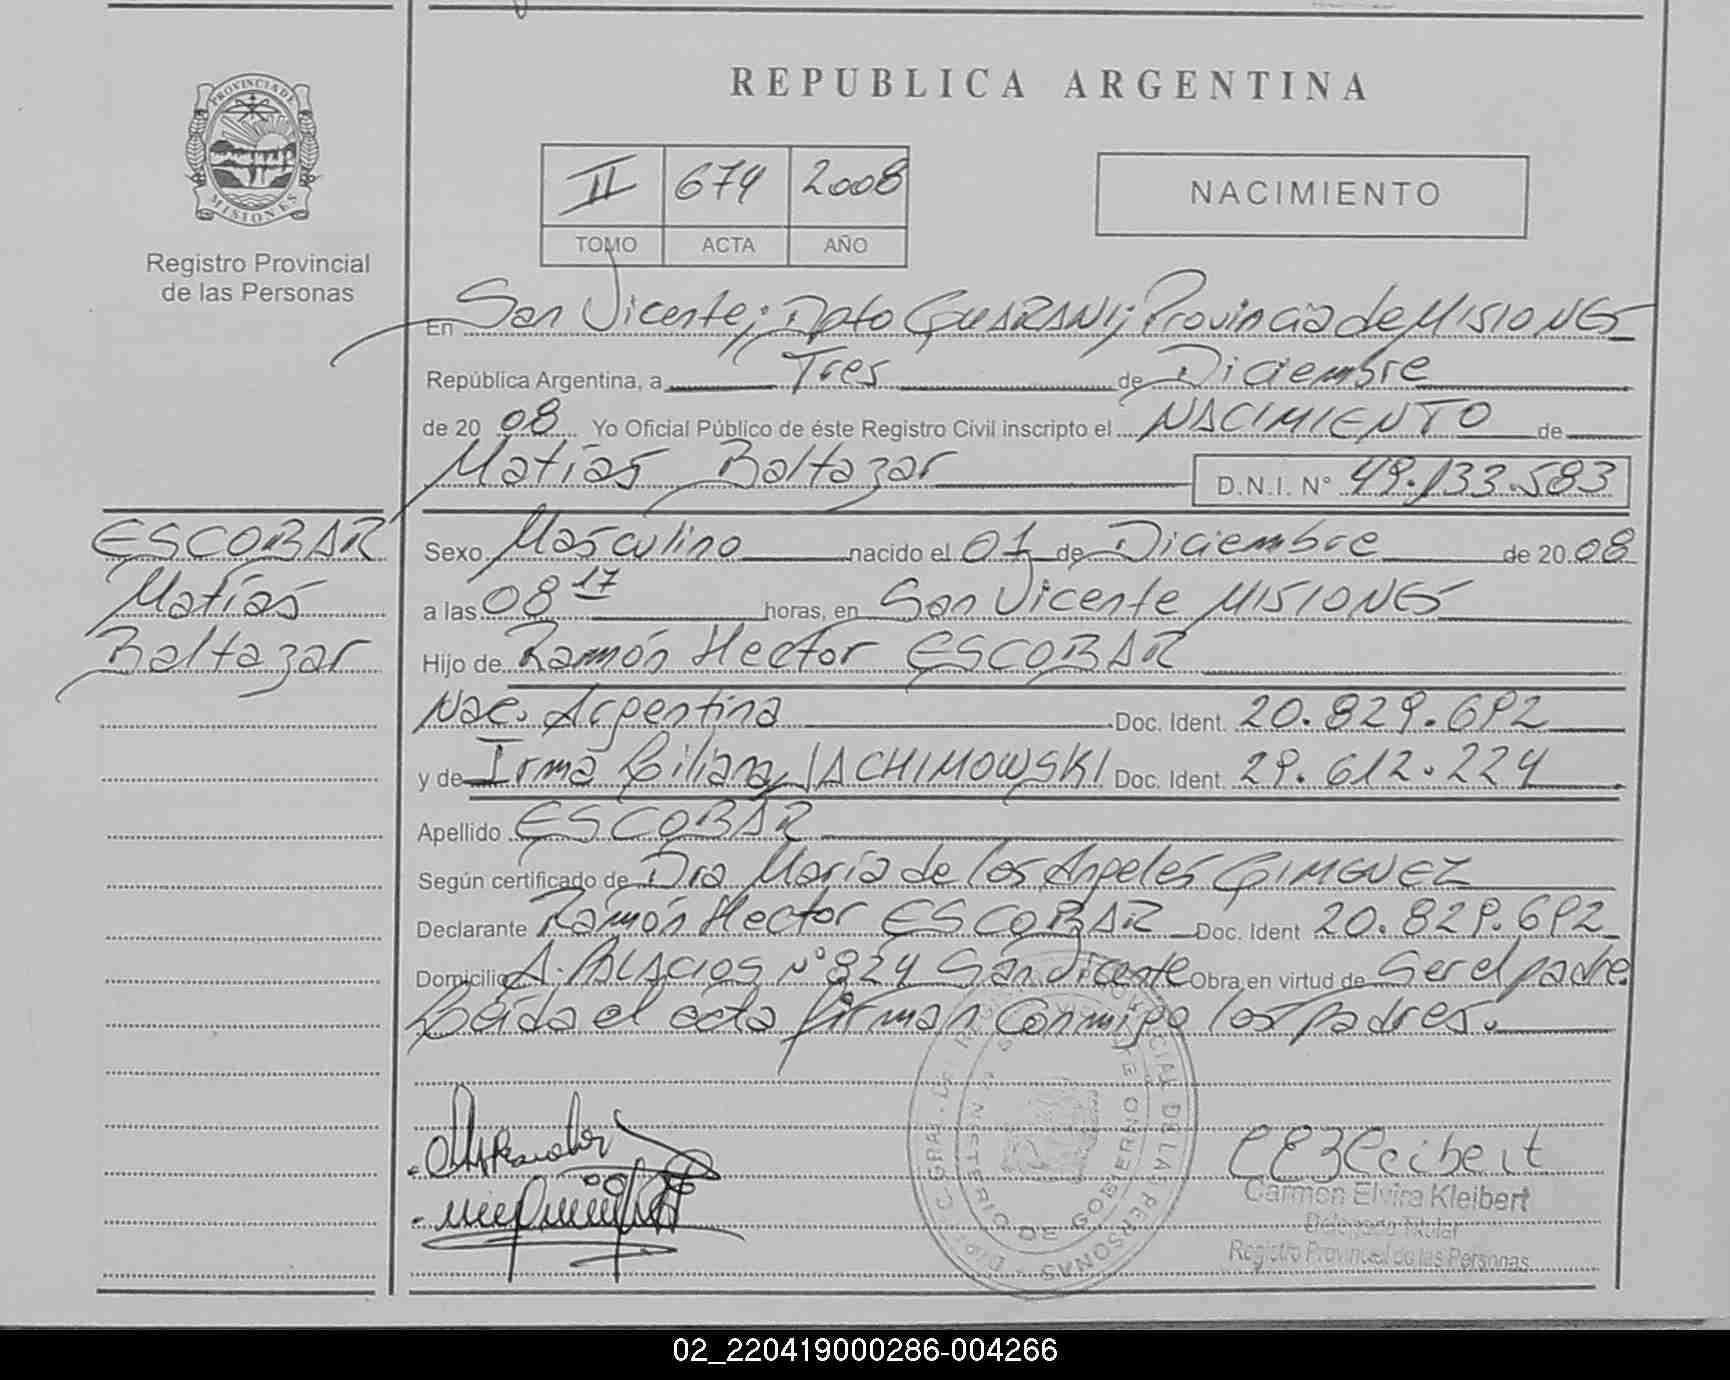 PROVINCIA DE
MISIONES
Registro Provincial
de las Personas
REPUBLICA ARGENTINA
II 674 2008
TOMO ACTA AÑO
NACIMIENTO
En San Vicente; Dpto GUARANI; Provincia de MISIONES
República Argentina, a Tres de Diciembre
de 20 08 Yo Oficial Público de éste Registro Civil inscripto el NACIMIENTO de
Matías Baltazar D.N.I. N° 49.133.583
ESCOBAR
Matías
Baltazar
Sexo Masculino nacido el 01 de Diciembre de 20 08
a las 08 17 horas, en San Vicente MISIONES
Hijo de Ramón Hector ESCOBAR
Nac. Argentina Doc. Ident. 20.829.692
y de Irma Liliana JACHIMOWSKI Doc. Ident. 29.612.224
Apellido ESCOBAR
Según certificado de Dra María de los Angeles GIMENEZ
Declarante Ramón Hector ESCOBAR Doc. Ident 20.829.692
Domicilio A. PALACIOS N° 824 San Vicente Obra en virtud de Ser el padre
Leída el acta firman conmigo los padres.
Carmen Elvira Kleibert
Delegada Titular
Registro Provincial de las Personas
02_220419000286-004266